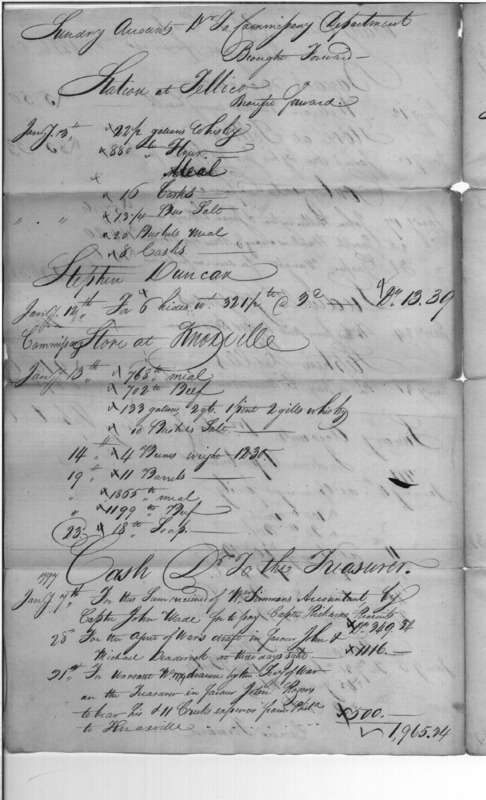 Sundry Accounts Dr To Commissary Department
Brought Forward
Station at Tellico
Brought Forward
Jany. 13th x 22½ gallons Whisky
x 880 lb Flour
Meal
x 16 Casks
" " x 13¼ Bus. Salt
x 20 Bushels meal
x 8 Casks
Stephen Duncan
Jany. 12th For 6 hides wt. 321½ lb @ Dr. 13.39
Commissary Store at Knoxville
Jany. 13th x 768 lb meal
x 702 lb Beef
x 133 gallons, 2 qt. 1 pint 2 gills whisky
x 10 Bushels Salt
14th x 4 weight
19th x 11 Barrels
" x 1865 lb meal
" x 1199 lb Beef
23 " 18 lb Soap
Cash Dr To the Treasurer
1797
Jany. 7th For this Sum received of Wm Simmons Accountant by
Captn John Wade for to pay Captn Richard x Dr. 349.34
28th For the of War's draft in favour John &
Michael at three days sight x 1116.
For Warrant drawn by the Secy of War
on the Treasurer in favour John Rogers
to bear his & 11 Creek expences from Phila
to Knoxville x 500.
1,965.34